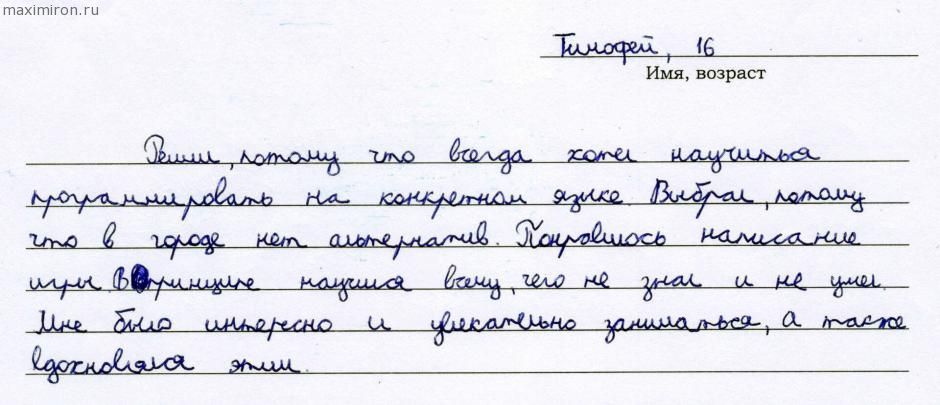 maximiron.ru
Тимофей, 16
Имя, возраст
Решил, потому что всегда хотел научиться
программировать на конкретном языке. Выбрал, потому
что в городе нет альтернатив. Понравилось написание
игры. В принципе научился всему, чего не знал и не умел.
Мне было интересно и увлекательно заниматься, а также
вдохновлялся этим.